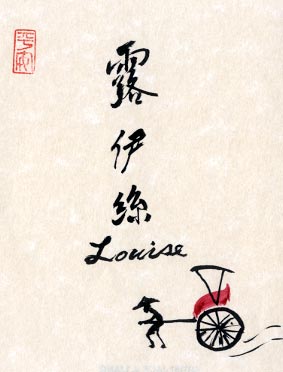 露
伊
絲
Louise